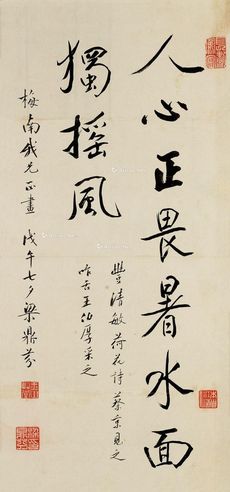 人心正畏暑水面
獨搖風
豐清敏荷花詩蔡京見之
咋舌王仙厚采之
梅南我兄正畫
戊午七夕梁鼎芬